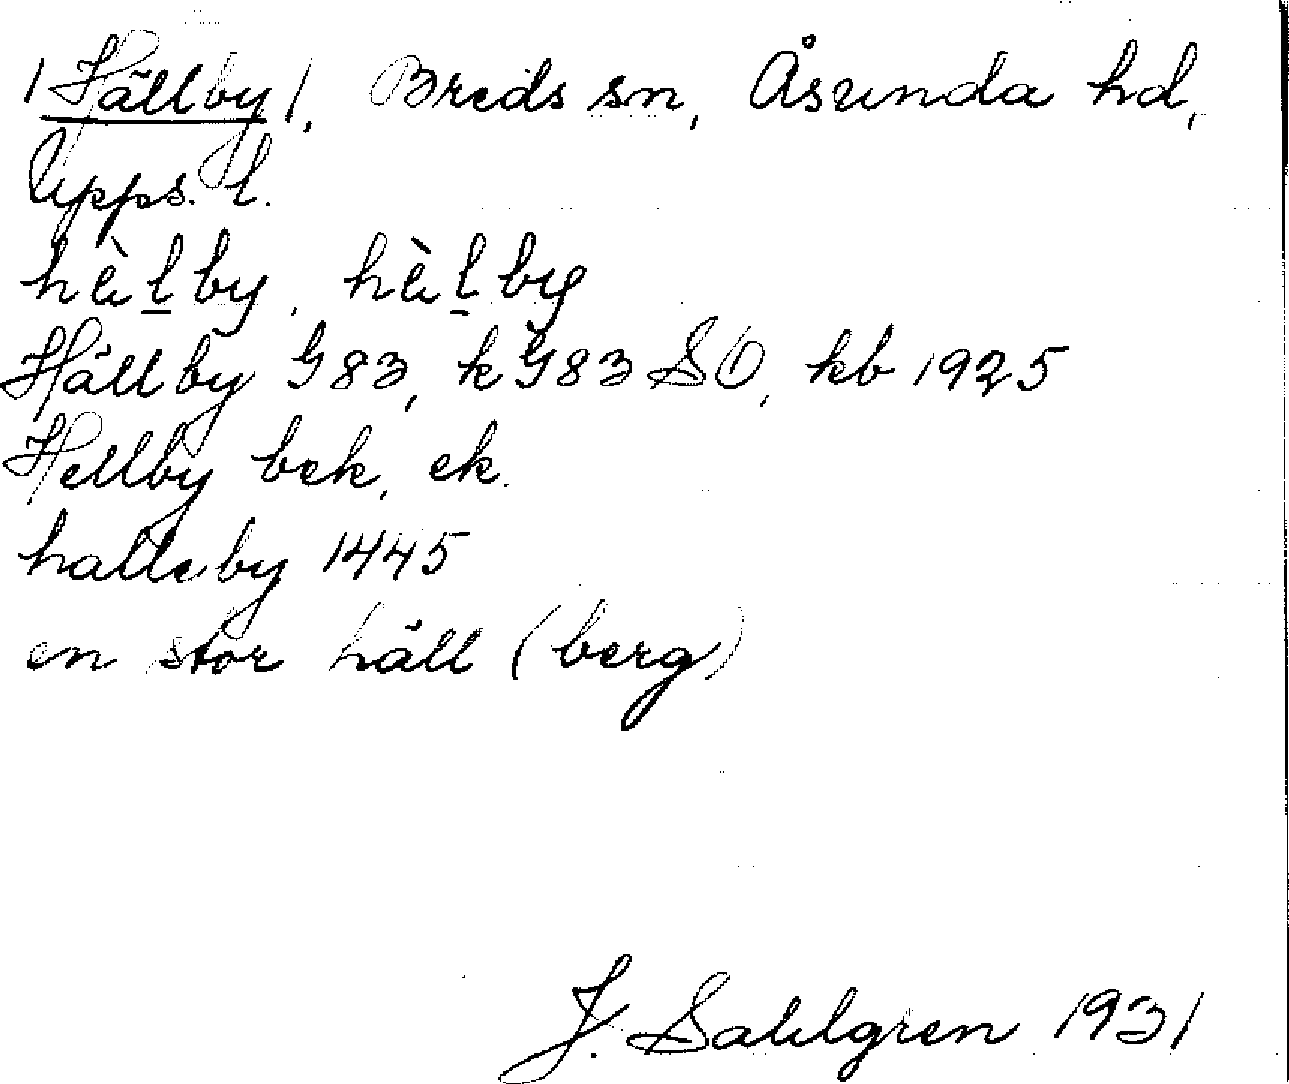 /Hällby/, Breds sn, Åsunda hd,
Upps. l.
hὲl̠by, hὲl̠by
Hällby G83, kG83SO, kb 1925
Hellby bek, ek.
halleby 1445
en stor häll (berg)
J. Sahlgren 1931